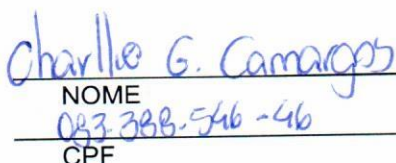 Charllie G. Camargos
NOME
083.388.546-46
CPF